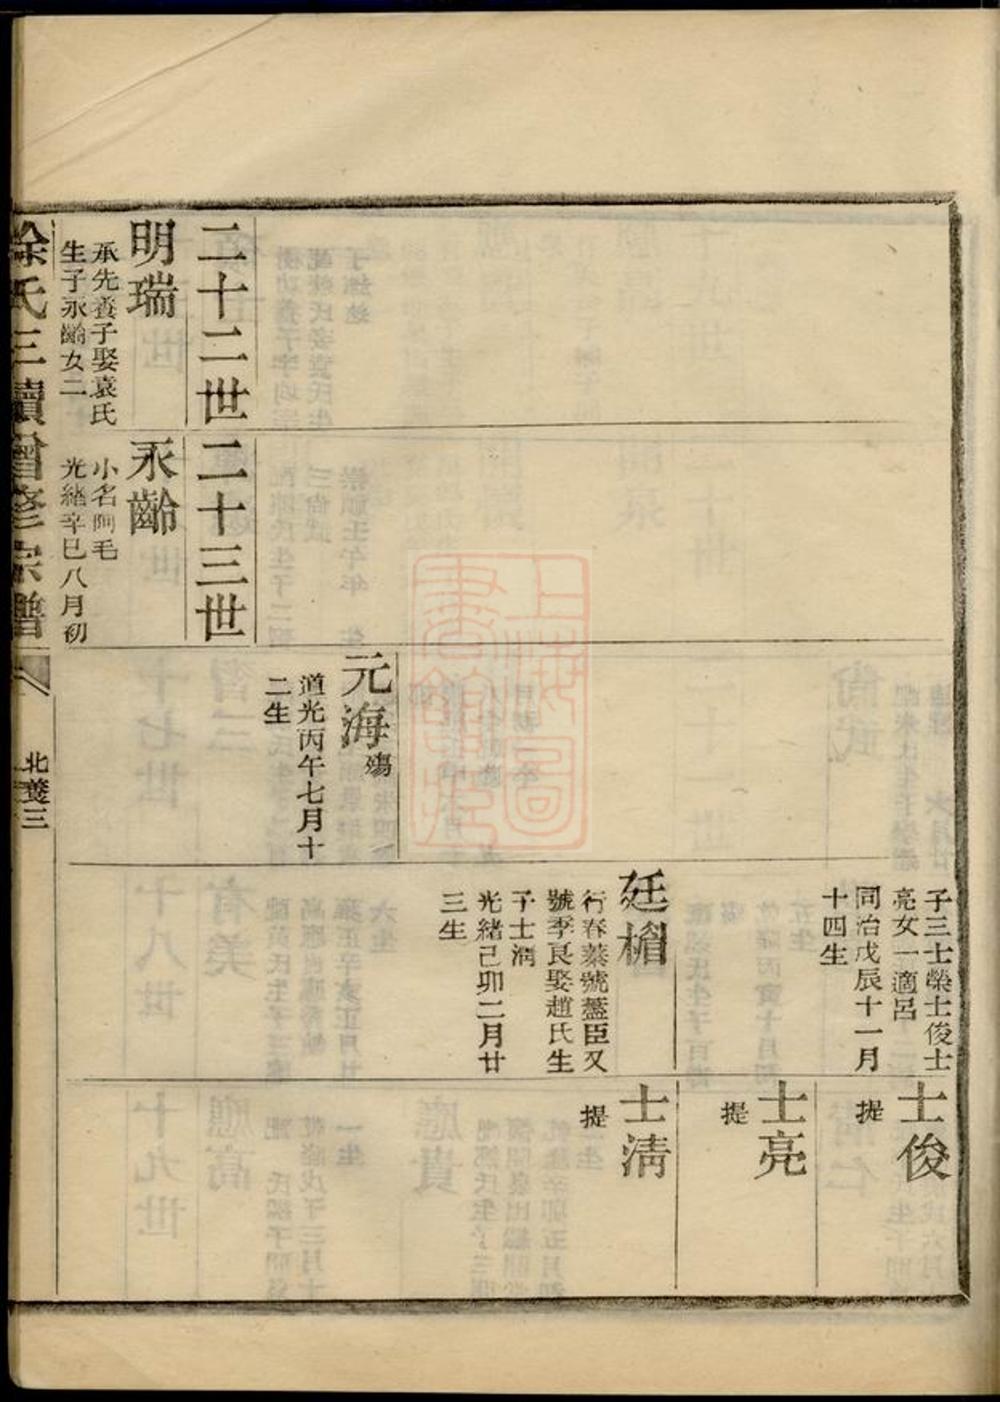 子三士榮士俊士
亮女一適呂
同治戊辰十一月
十四生
士俊
提
士亮
提
廷楣
行春蓁號藎臣又
號季良娶趙氏生
子士淸
光緒己卯二月廿
三生
士淸
提
元海殤
道光丙午七月十
二生
二十二世
二十三世
明瑞
承先養子娶袁氏
生子永齡女二
永齡
小名阿毛
光緒辛巳八月初
徐氏三續曾修宗譜
北㳬三
上海圖書館藏